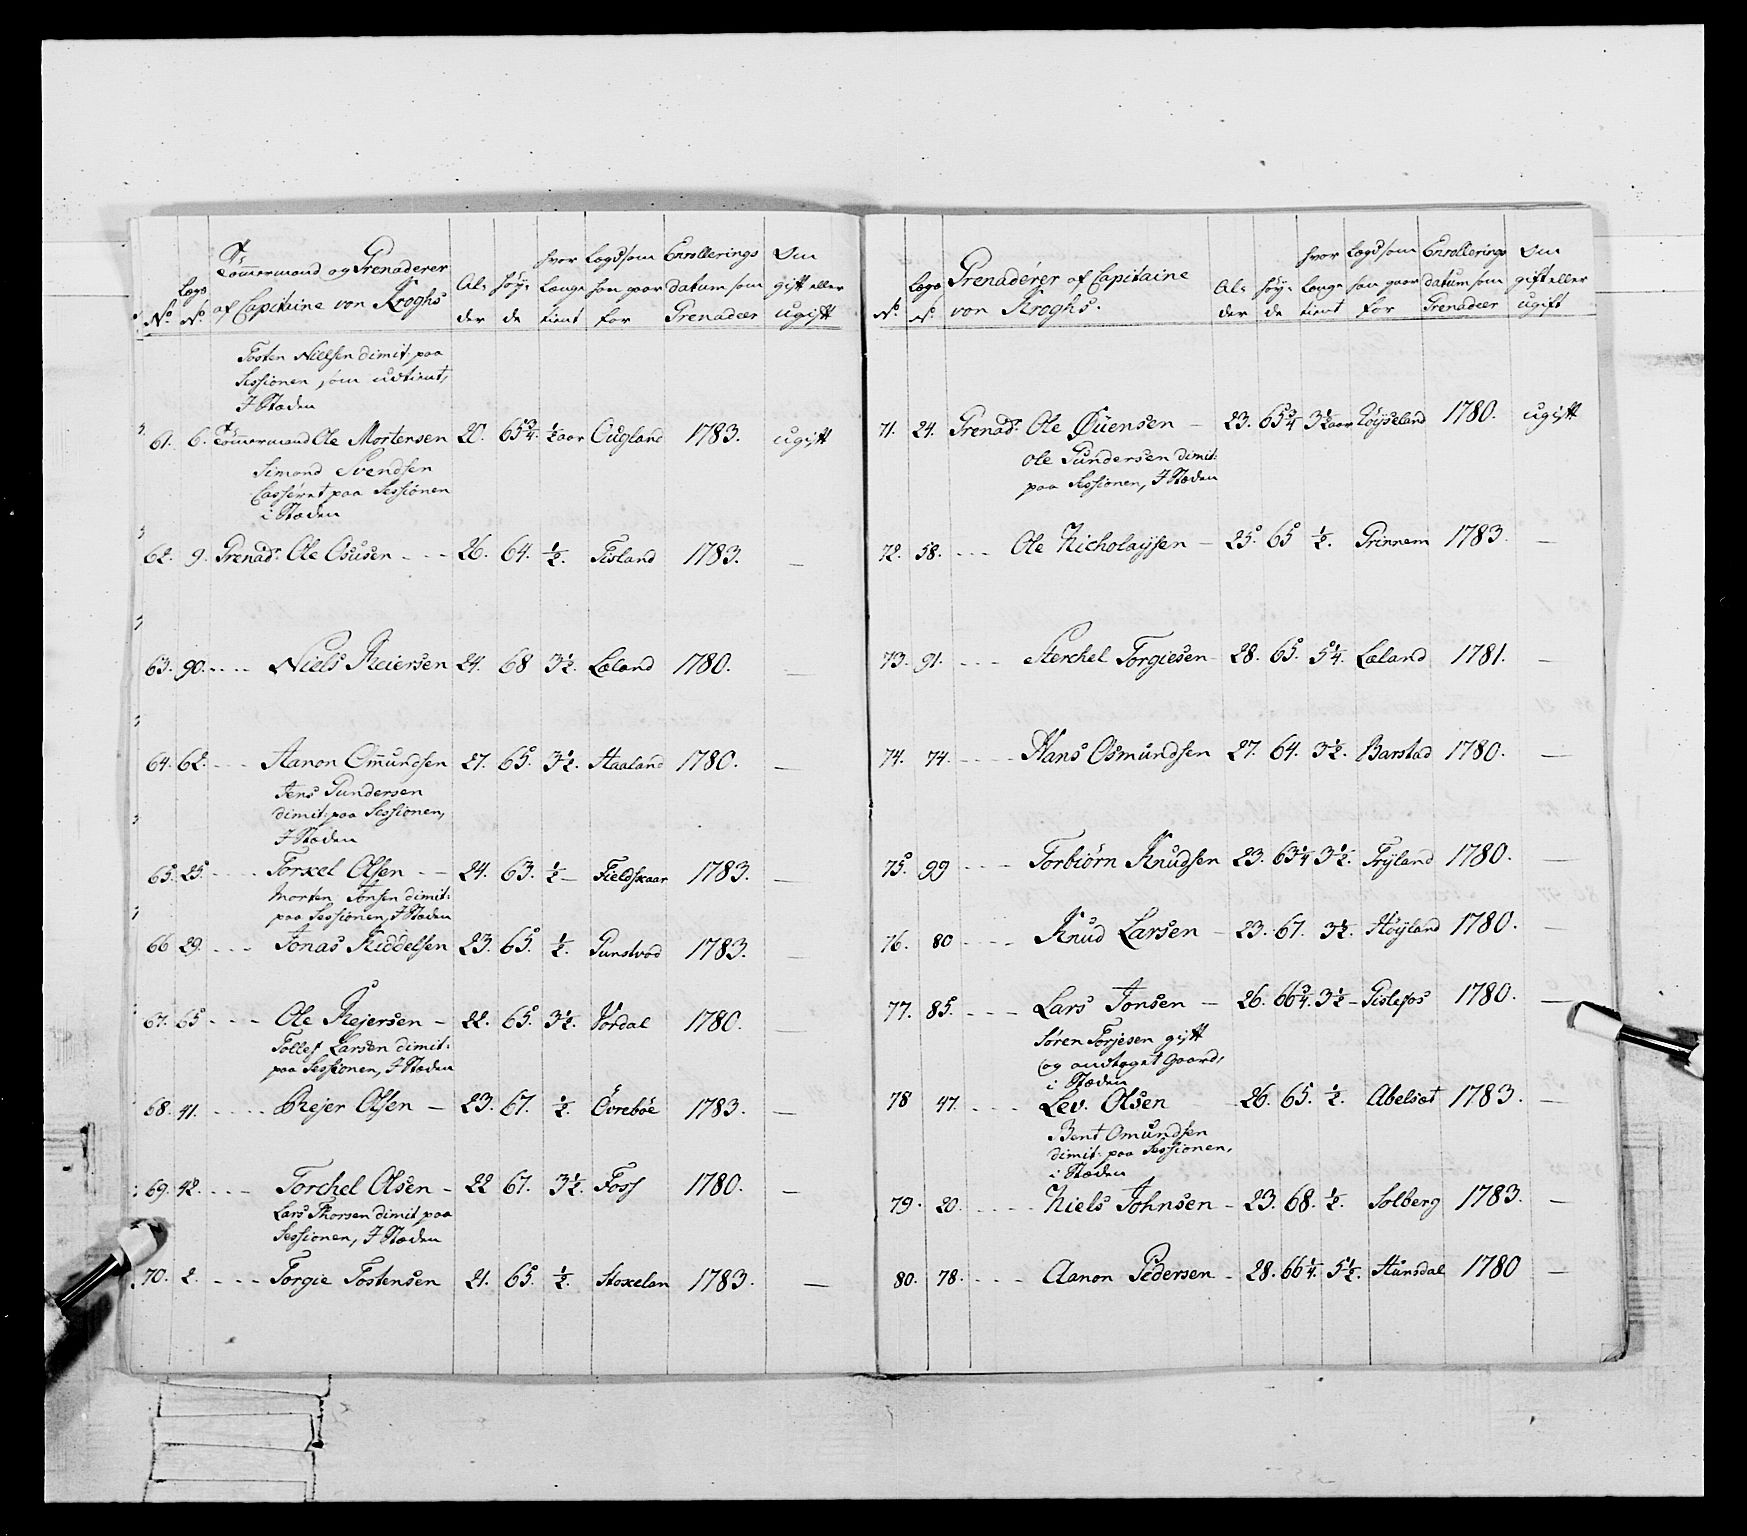 No. Lægs No. Tømmermand og Grenaderer af Capitaine von Kroghs Al- der Høy- de hvor Længe tient Lægd som han gaar for Enrollerings datum som Grenadeer Om gift eller ugift
Tosten Nielsen dimit: paa
Sessionen, som udtient,
I Stæden
61. 6. Tømmermand Ole Mortensen 20. 65 3/4. 1/2 aar Augland 1783. ugift
Simond Svendsen
Casseret paa Sessionen
i Stæden
62. 9. Grenad: Ole Osusen - - - 26. 64. 1/2. Fisland 1783. —
63. 90. - - - - Niels Reiersen 24. 68 3 1/2. Leland 1780. —
64. 62. - - - Aanon Omundsen 27. 65. 3 1/2. Haaland 1780. —
Jens Gundersen
dimit: paa Sessionen,
I Stæden
65. 25. - - - - Torkel Olsen - - 24. 63. 1/2 - Fieldskaar 1783. —
Morten Tonsen dimit:
paa Sessionen, I Stæden
66 29. - - - Jonas Kiddelsen 23. 65. 1/2. Gunstvod 1783. —
67. 65 - - - - Ole Rejersen - 22. 65. 3 1/2. Vordal 1780. —
Tollef Larsen dimit:
paa Sessionen, I Stæden
68. 41. - - - - Rejer Olsen - 23. 67. 1/2. Øvrebøe 1783. —
69. 42. - - - Torchel Olsen - 22 67. 3 1/2. Foss 1780. —
Lars Thorsen dimit paa
Sessionen, I Stæden
70. 2. - - - Torgie Tostensen 21. 65. 1/2. Stoxelan 1783. —
No. Lægs No. Grenaderer af Capitaine von Kroghs. Al- der Høy- de hvor Længe tient Lægd som han gaar for Enrollerings datum som Grenadeer Om gift eller ugift
71. 24. Grenad: Ole Øuensen - 23. 65 3/4 3 1/2 aar Røyseland 1780. ugift
Ole Gundersen dimit:
paa Sessionen, I Stæden
72. 58. - - - Ole Nicholaysen - 25. 65 1/2. Grinnem 1783. —
73. 91. - - - Sterchel Torgiesen 28. 65. 5 1/4. Leland 1781. —
74. 74. - - - - Hans Osmundsen 27. 64. 3 1/2. Barstad 1780. —
75. 99 - - - Torbiørn Knudsen 23. 63 1/4 3 1/2. Tryland 1780. —
76. 80 - - - - Knud Larsen - 23. 67. 3 1/2. Høyland 1780. —
77. 85. - - - - Lars Tonsen - 26. 66 3/4. 3 1/2 - Gislefos 1780. —
Søren Torjesen gift
og andtaget Gaard,
i Stæden
78 47. - - - - Lev. Olsen - 26. 65. 1/2. Abelset 1783. —
Bent Omundsen
dimit: paa Sessionen,
i Stæden
79. 20. - - - - Niels Johnsen - 23. 68. 1/2. Solberg 1783. —
80. 78. - - - - Aanon Pedersen - 28. 66 1/4. 5 1/2. Hunsdal 1780 —